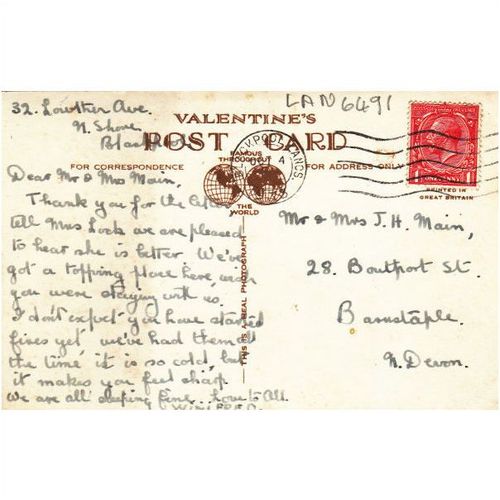 LAN6491
32. Lowther Ave.
N. Shore
VALENTINE'S
POST CARD
FAMOUS
THROUGHOUT
THE
WORLD
FOR CORRESPONDENCE
FOR ADDRESS ONLY
PRINTED IN
GREAT BRITAIN
THIS IS A REAL PHOTOGRAPH
Dear Mr & Mrs Main,
Thank you for the
tell Mrs Lock we are pleased
to hear she is better. We've
got a topping place here, wish
you were staying with us,
I don't expect you have started
fires yet we've had them all
the time it is so cold, but
it makes you feel sharp
We are all sleeping fine. Love to All.
WINIFRED.
Mr & Mrs J. H. Main,
28. Boutport St.
Barnstaple.
N. Devon.